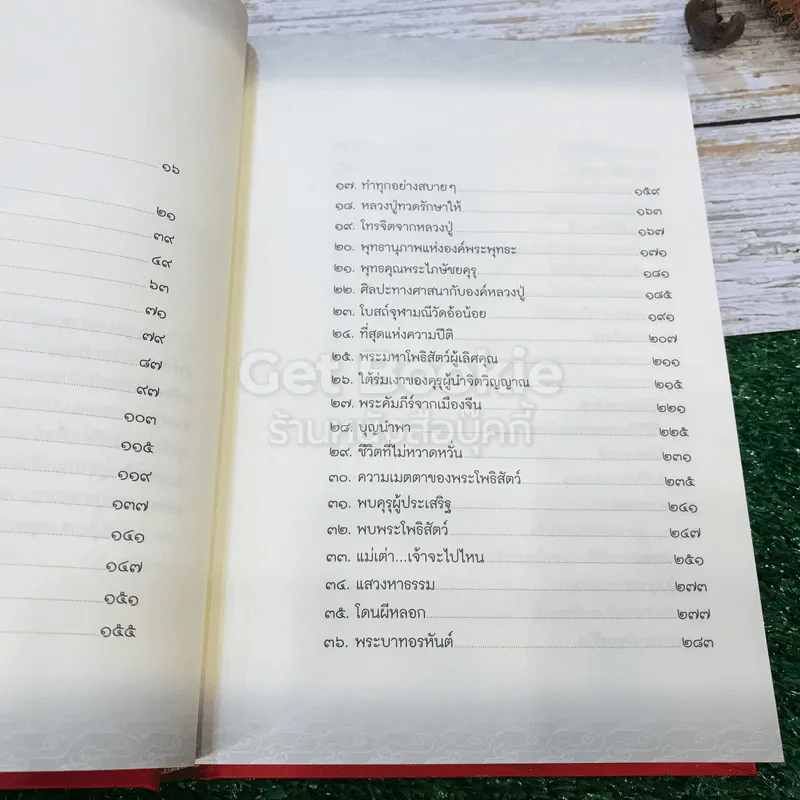 ๑๖
๒๑
๓๙
๔๙
๖๓
๗๑
๗๙
๘๗
๙๗
๑๐๓
๑๑๕
๑๑๙
๑๓๗
๑๔๑
๑๔๗
๑๕๑
๑๕๕
๑๗. ทำทุกอย่างสบาย ๆ ๑๕๙
๑๘. หลวงปู่ทวดรักษาให้ ๑๖๓
๑๙. โทรจิตจากหลวงปู่ ๑๖๗
๒๐. พุทธานุภาพแห่งองค์พระพุทธะ ๑๗๑
๒๑. พุทธคุณพระไภษัชยคุรุ ๑๘๑
๒๒. ศิลปะทางศาสนากับองค์หลวงปู่ ๑๘๕
๒๓. โบสถ์จุฬามณีวัดอ้อน้อย ๑๙๑
๒๔. ที่สุดแห่งความปีติ ๒๐๗
๒๕. พระมหาโพธิสัตว์ผู้เลิศคุณ ๒๑๑
๒๖. ใต้ร่มเงาของคุรุผู้นำจิตวิญญาณ ๒๑๕
๒๗. พระคัมภีร์จากเมืองจีน ๒๒๑
๒๘. บุญนำพา ๒๒๕
๒๙. ชีวิตที่ไม่หวาดหวั่น ๒๓๑
๓๐. ความเมตตาของพระโพธิสัตว์ ๒๓๕
๓๑. พบคุรุผู้ประเสริฐ ๒๔๑
๓๒. พบพระโพธิสัตว์ ๒๔๗
๓๓. แม่เต่า...เจ้าจะไปไหน ๒๕๑
๓๔. แสวงหาธรรม ๒๗๓
๓๕. โดนผีหลอก ๒๗๗
๓๖. พระบาทอรหันต์ ๒๘๓
Get Bookie
ร้านหนังสือบุคกี้